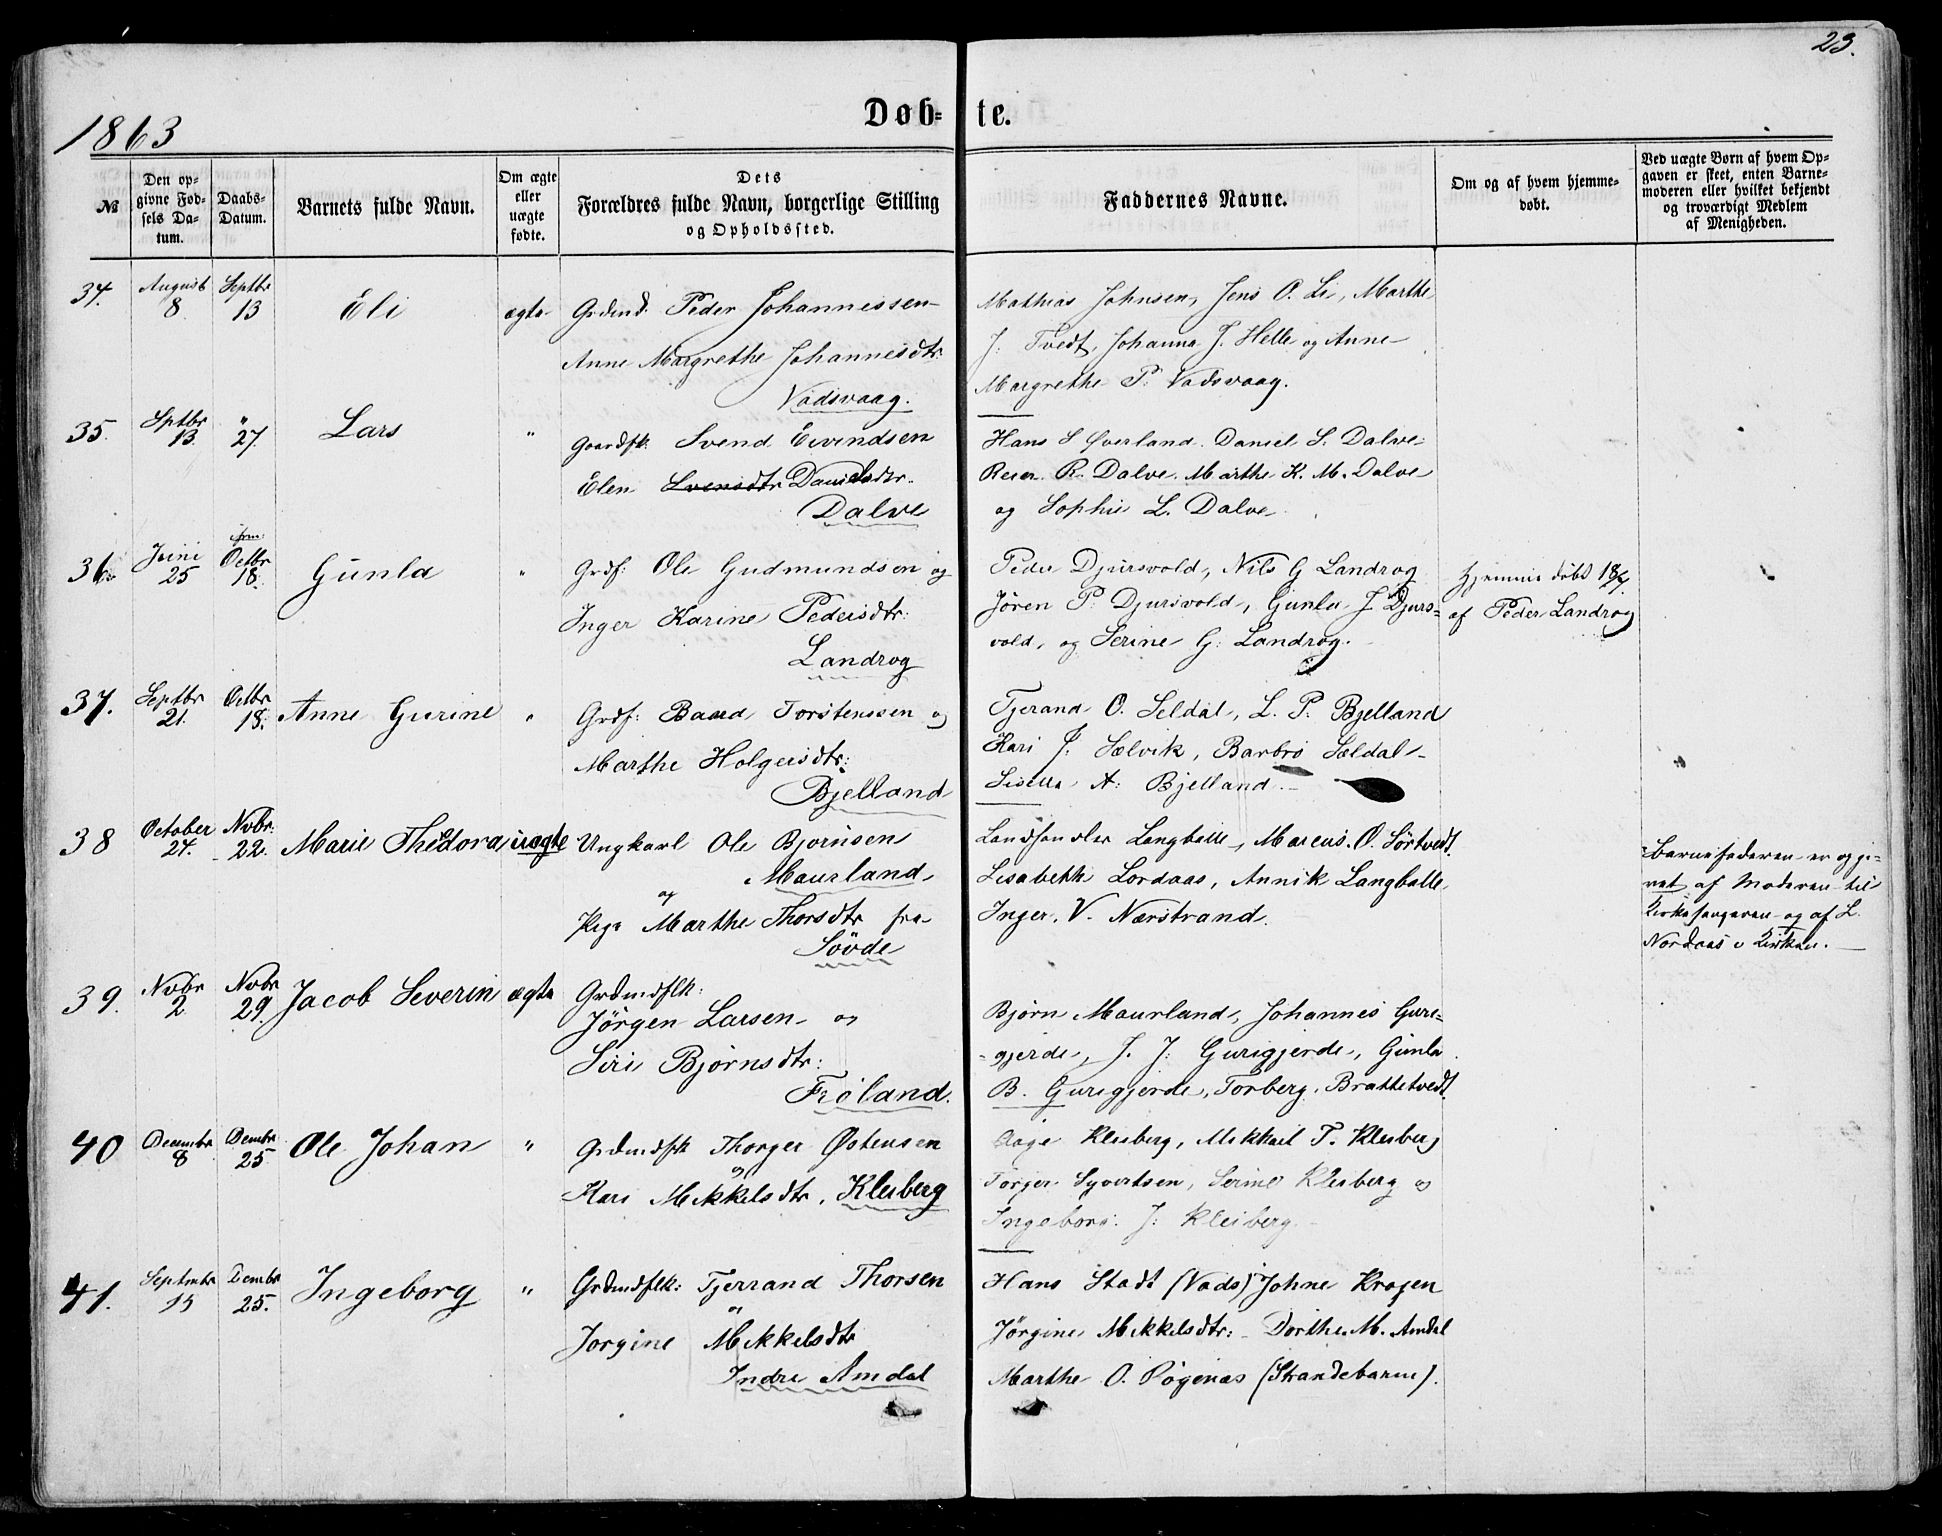 23.
1863
Døb= te.
№
Den op=
givne Fød=
sels Da=
tum.
Daabs=
Datum.
Barnets fulde Navn.
Om ægte
eller
uægte
fødte.
Dets
Forældres fulde Navn, borgerlige Stilling
og Opholdssted.
Faddernes Navne.
Om og af hvem hjemme=
døbt.
Ved uægte Børn af hvem Op=
gaven er skeet, enten Barne=
moderen eller hvilket bekjendt
og troværdigt Medlem
af Menigheden.
34. August 8. Septbr 13 Eli ægte Grdmd. Peder Johannessen
Anne Margrethe Johannesdtr
Vadsvaag.
Mathias Johnsen, Jens O. Li, Marthe
J: Tvedt, Johanna J. Helle og Anne
Margrethe P. Vadsvaag.
35. Sptbr 13. " 27. Lars " Gaardfk: Svend Eivindsen
Elen Svensdtr Danielsdtr.
Dalve
Hans S Øverland. Daniel S. Dalve
Reier R. Dalve. Marthe K. M. Dalve
og Sophie L. Dalve
36. Juni 25 Octbr 18. Gunla " Grdf: Ole Gudmundsen og
Inger Karine Pedersdtr:
Landrog
Peder Djursvold, Nils G Landrog
Jören P. Djursvold, Gunla J Djurs=
vold, og Serine G: Landrog.
Hjemme döbt
af Peder Landrog
37. Septbr 21. Octbr 18. Anne Gurine " Grdf: Baard Torstenssen og
Marthe Holgersdtr:
Bjelland
Tjerand O. Seldal, L. P. Bjelland
Kari J. Sælvik, Barbro Sældal
A: Bjelland.
38 October 24. Nvbr: 22. Marie Thedora uægte Ungkarl Ole Bjornsen
Maurland
og
Pige Marthe Thorsdtr fra
Søvde
Landhandler Langballe, Marcus. O. Sörtvedt.
Lisabeth Lordaas, Annik Langballe,
Inger. V. Nærstrand.
Barnefaderen er opgi=
vet af Moderen til
Kirkesangeren og af L.
Nordaas i Kirken.
39. Nvbr 2 Nvbr 29. Jacob Severin ægte Grdmdflk:
Jörgen Larsen og
Siri Bjørnsdtr:
Frøland.
Bjørn Maurland, Johannes Guri=
=gjerde, J. J: Gurigjerde, Gunla
B. Gurigjerde, Torberg. Brattetvedt.
40 Decembr 8 Dembr 25 Ole Johan " Grdmdfk Thorger Østensen
og
Kari Mikkelsdtr, Kleiberg
Aage Kleiberg, Mikkael T. Kleiberg
Torger Syvertsen, Serine Kleiberg og
Ingeborg. J: Kleiberg.
41. Septmbr 15 Dembr 25. Ingeborg " Grdmdflk: Tjerrand Thorsen
og
Jorgine Mikkelsdtr
Indre Amdal
Hans Stadt (Vads) Johne Krogen
Jörgine Mikkelsdtr: Dorthe. M. Amdal
Marthe O. Røgenæs (Strandebarm).